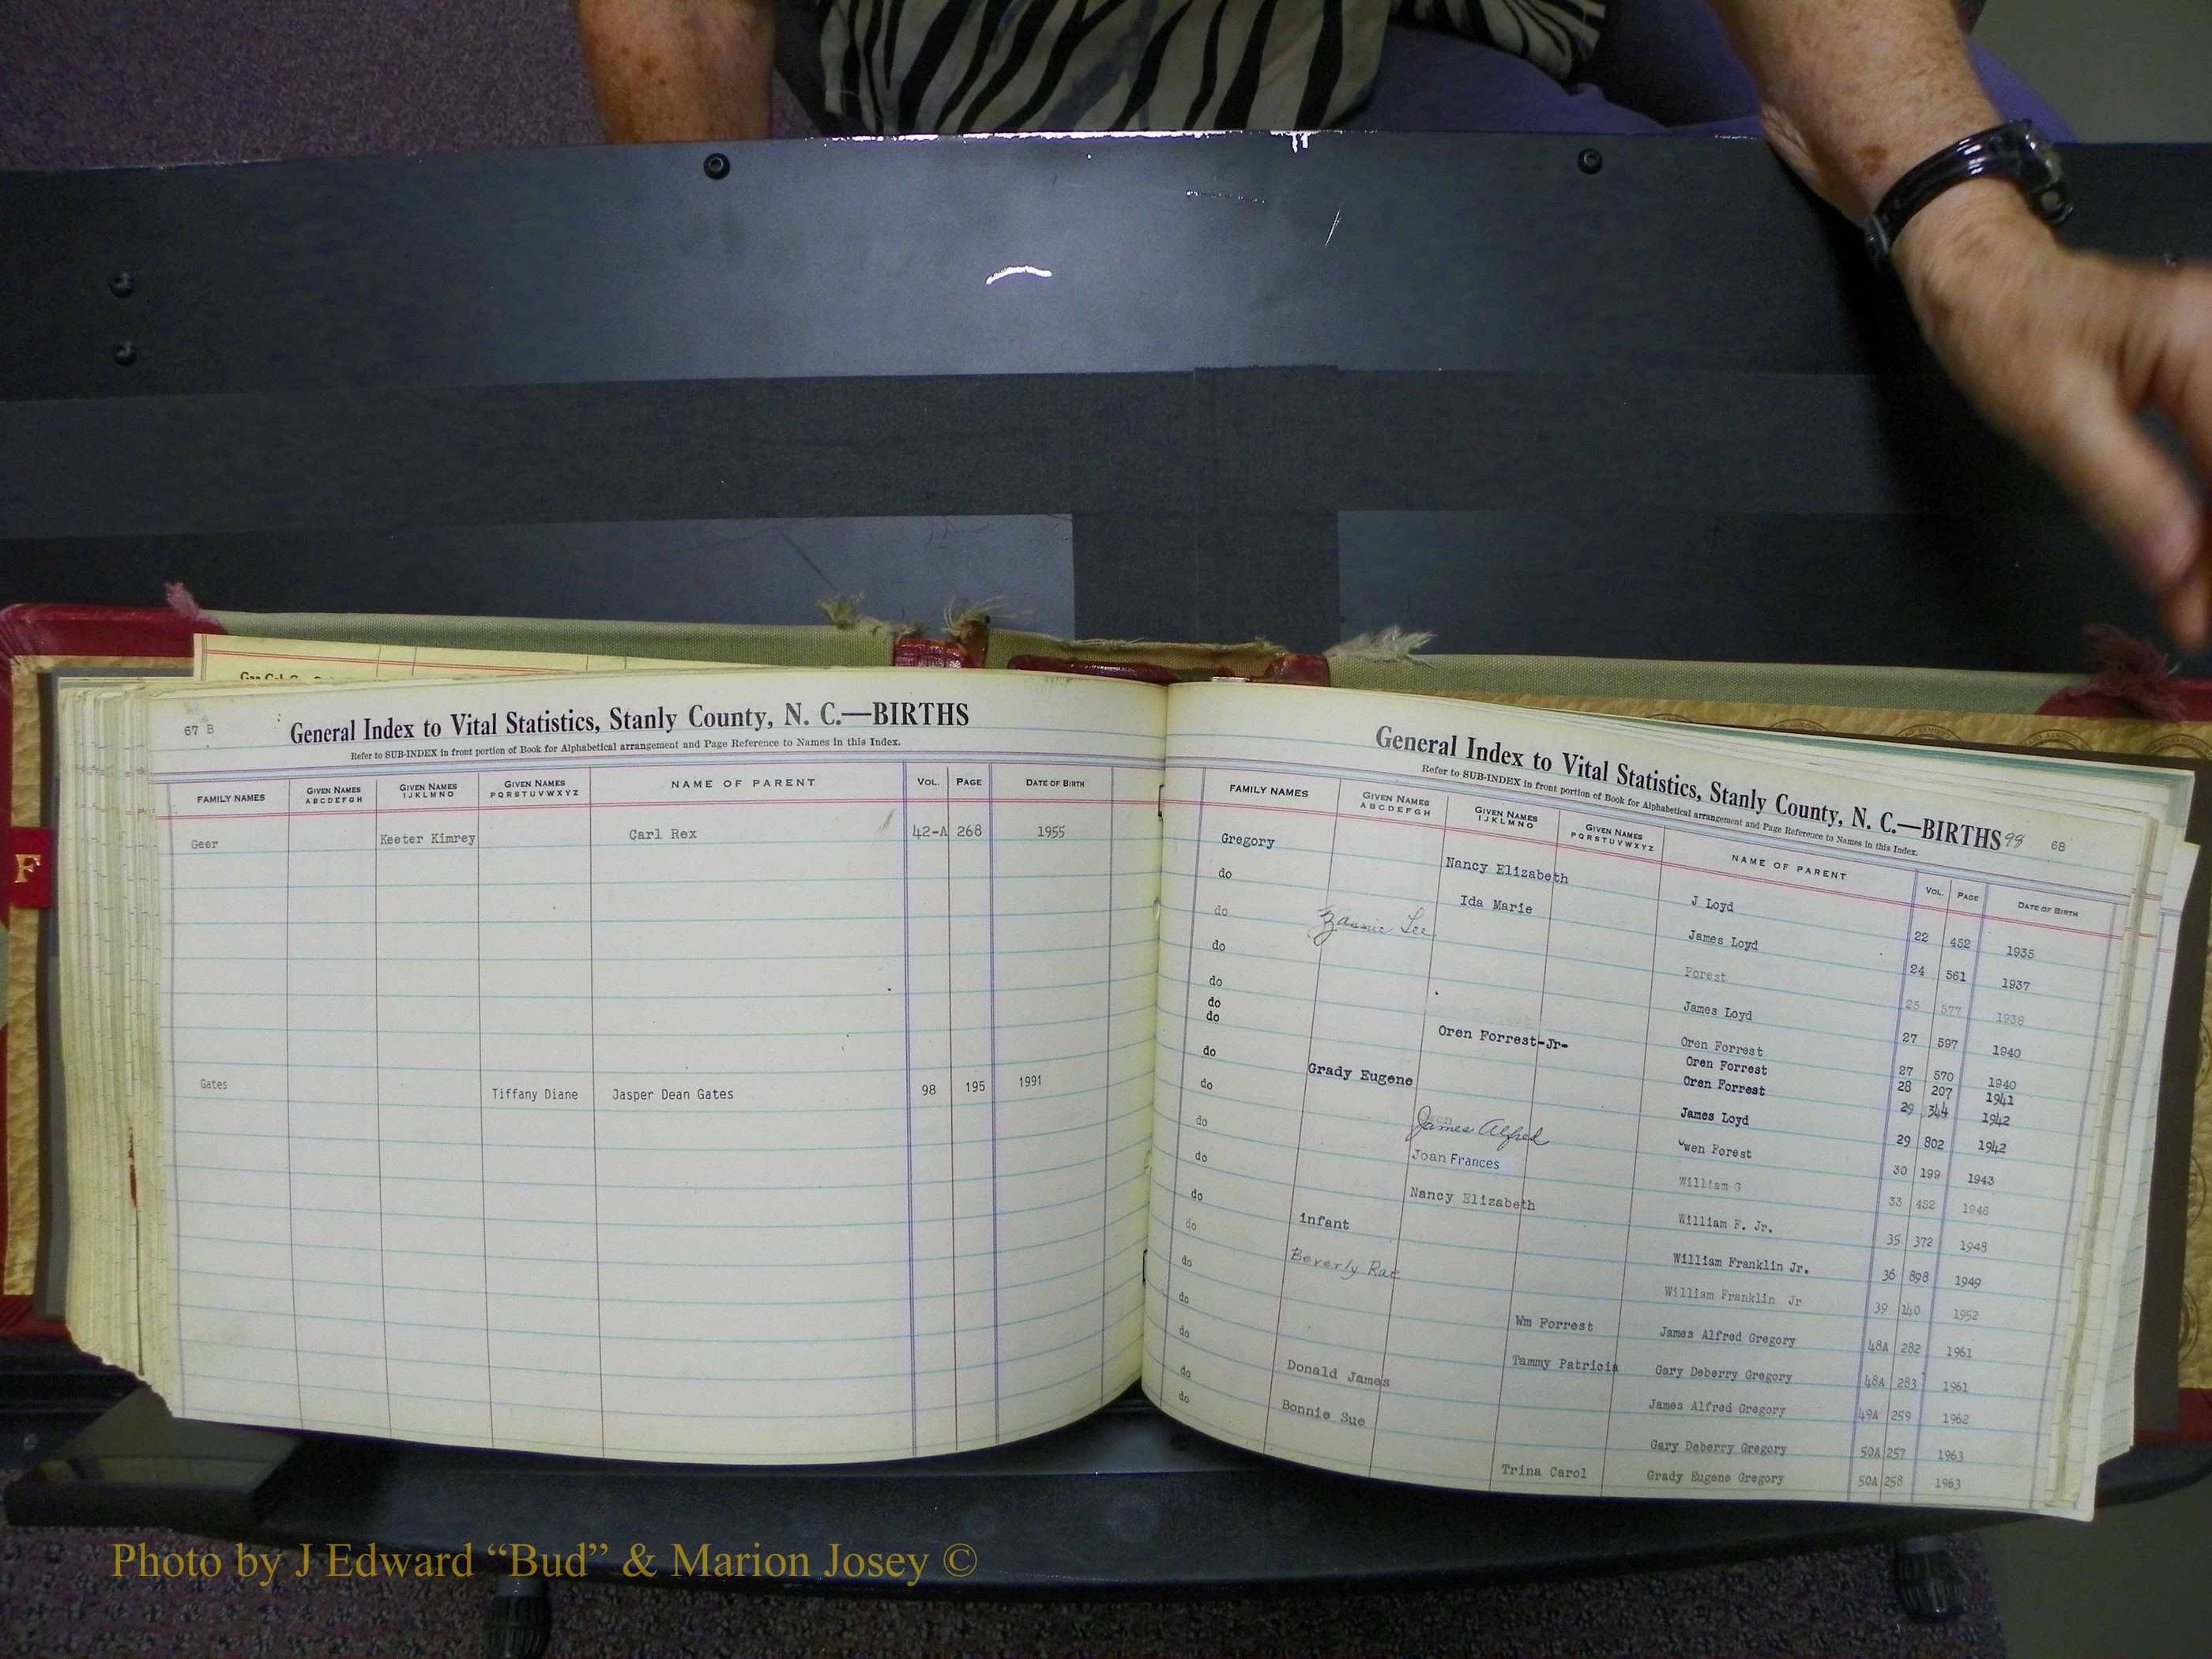 F
67 B
General Index to Vital Statistics, Stanly County, N. C.—BIRTHS
Refer to SUB-INDEX in front portion of Book for Alphabetical arrangement and Page Reference to Names in this Index.
FAMILY NAMES GIVEN NAMES ABCDEFGH GIVEN NAMES IJKLMNO GIVEN NAMES PQRSTUVWXYZ NAME OF PARENT VOL. PAGE DATE OF BIRTH
Geer Keeter Kimrey Carl Rex 42-A 268 1955
Gates Tiffany Diane Jasper Dean Gates 98 195 1991
General Index to Vital Statistics, Stanly County, N. C.—BIRTHS 98 68
Refer to SUB-INDEX in front portion of Book for Alphabetical arrangement and Page Reference to Names in this Index.
FAMILY NAMES GIVEN NAMES ABCDEFGH GIVEN NAMES IJKLMNO GIVEN NAMES PQRSTUVWXYZ NAME OF PARENT VOL. PAGE DATE OF BIRTH
Gregory Nancy Elizabeth J Loyd 22 452 1935
do Ida Marie James Loyd 24 561 1937
do Lee Forest 25 577 1938
do James Loyd 27 597 1940
do Oren Forrest 27 570 1940
do Oren Forrest 28 207 1941
do Oren Forrest-Jr- Oren Forrest 29 344 1942
do Grady Eugene James Loyd 29 802 1942
do James Alfred wen Forest 30 199 1943
do Joan Frances William G 33 452 1946
do Nancy Elizabeth William F. Jr. 35 372 1948
do infant William Franklin Jr. 36 898 1949
do Beverly Rae William Franklin Jr 39 140 1952
do Wm Forrest James Alfred Gregory 48A 282 1961
do Tammy Patricia Gary Deberry Gregory 48A 283 1961
do Donald James James Alfred Gregory 49A 259 1962
do Bonnie Sue Gary Deberry Gregory 50A 257 1963
do Trina Carol Grady Eugene Gregory 50A 258 1963
Photo by J Edward “Bud” & Marion Josey ©